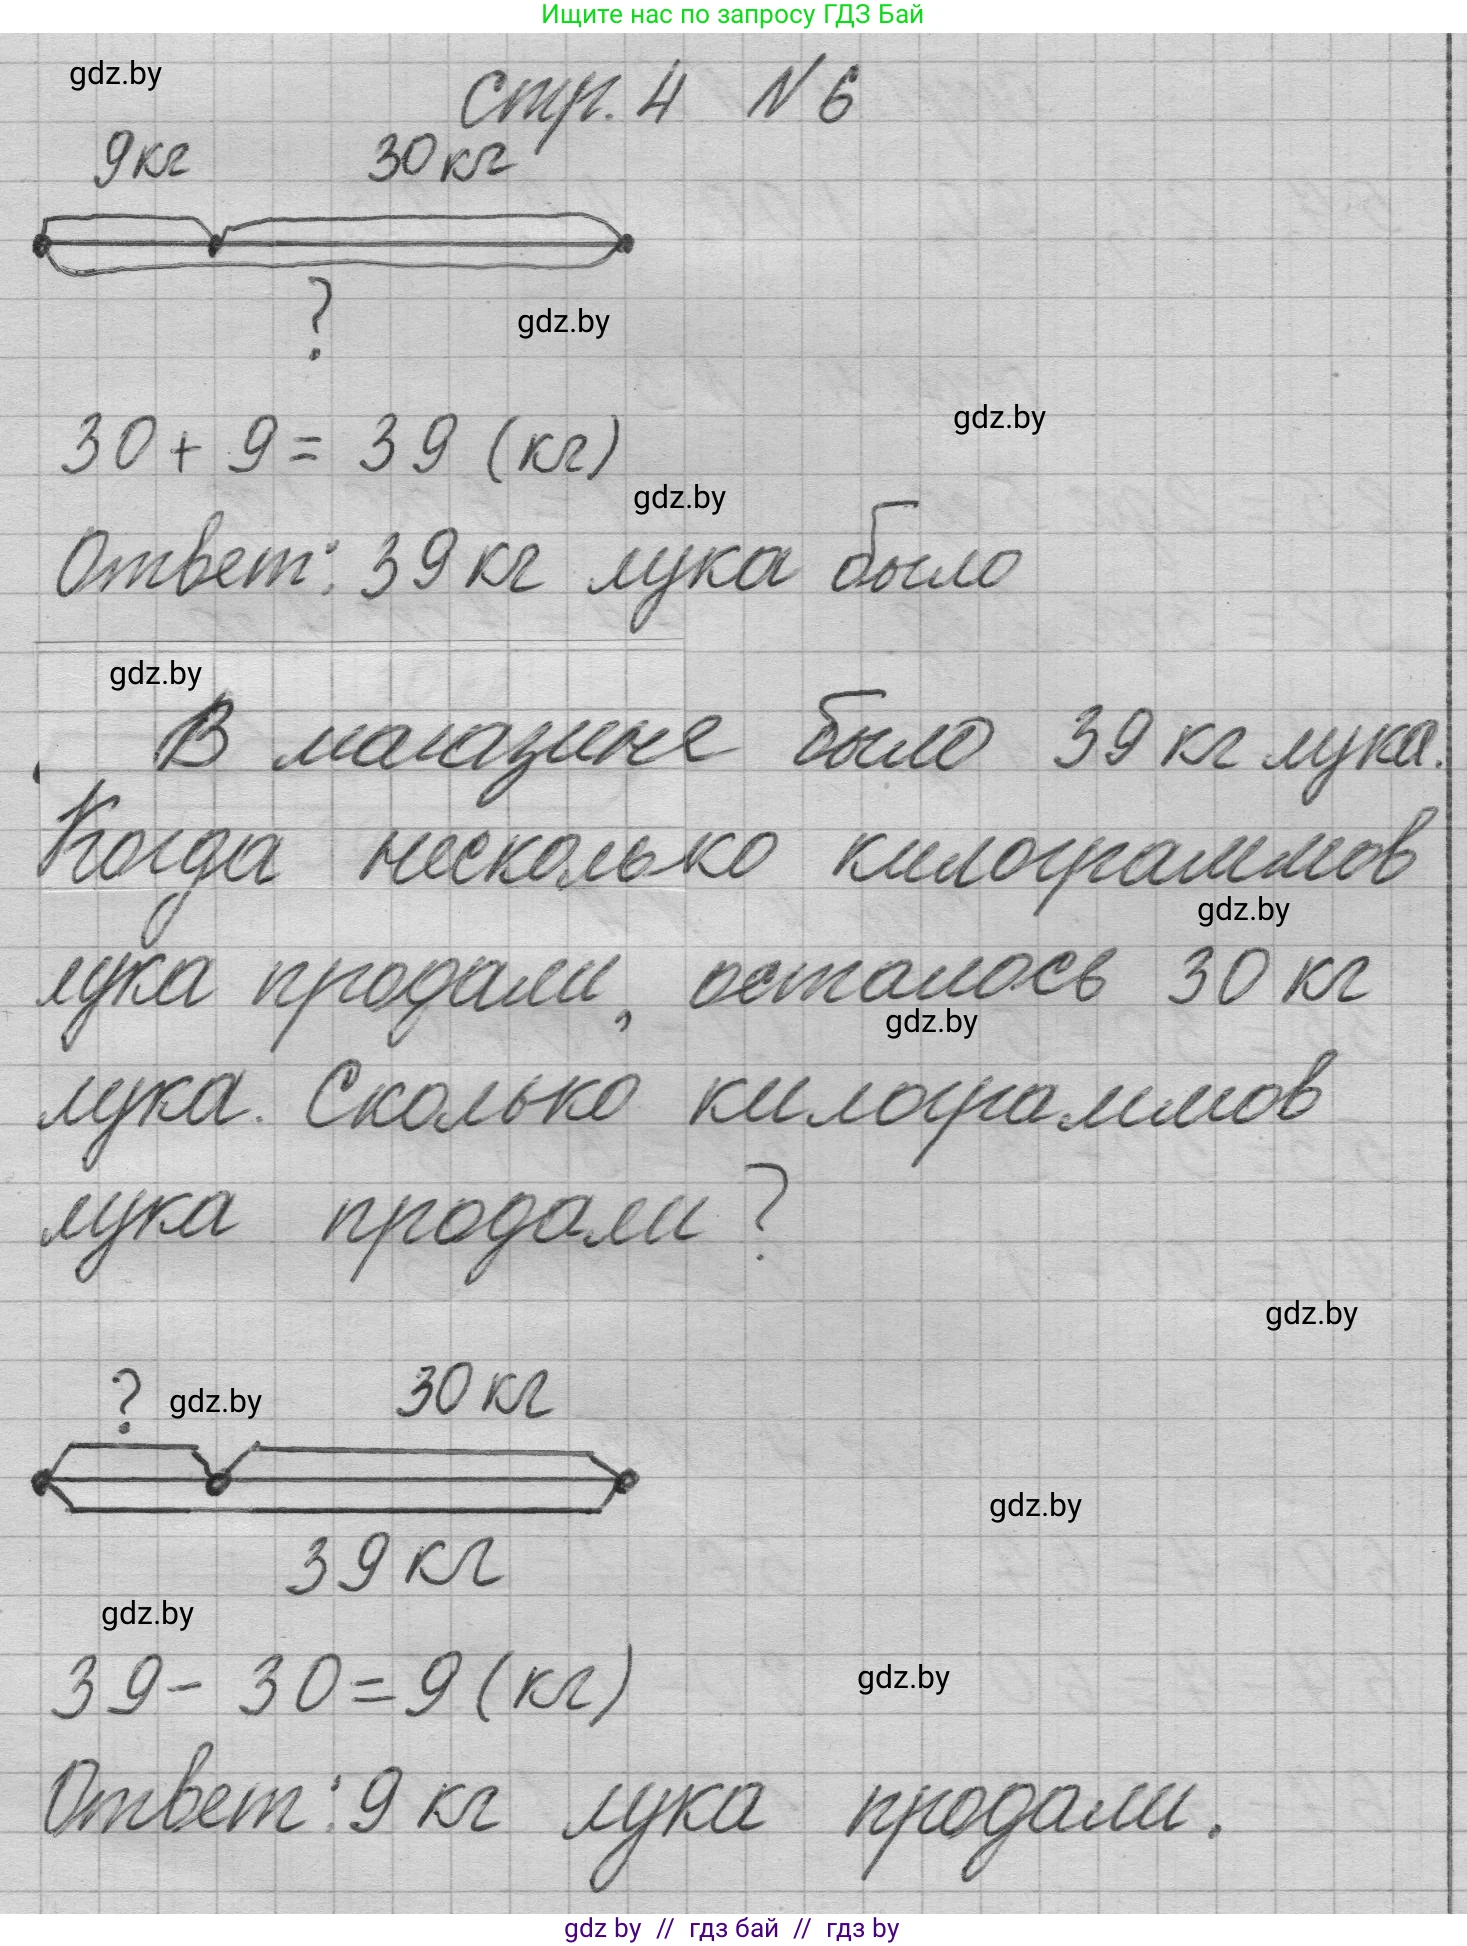 Ищите нас по запросу ГДЗ Бай
gdz.by
Стр. 4 №6
9кг 30кг
?
gdz.by
30+9=39 (кг)
gdz.by
gdz.by
Ответ: 39кг лука было
gdz.by
В магазине было 39кг лука.
Когда несколько килограммов
gdz.by
лука продали, осталось 30 кг
gdz.by
лука. Сколько килограммов
лука продали?
gdz.by
? gdz.by 30кг
gdz.by
39кг
gdz.by
39-30=9(кг)
gdz.by
Ответ: 9кг лука продали.
gdz by // гдз бай // гдз by